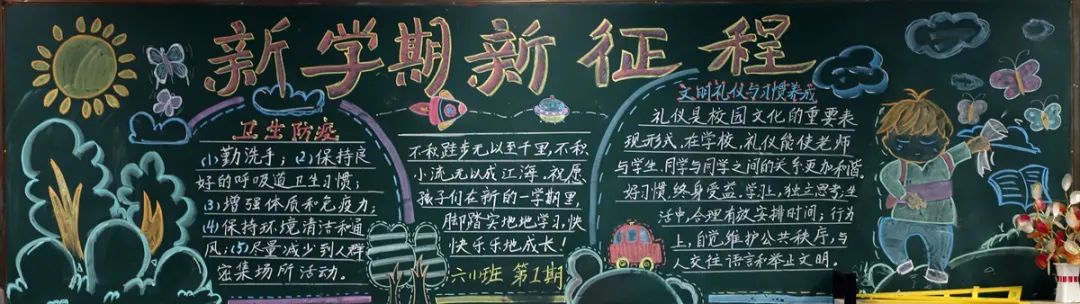 新学期新征程
卫生防疫
(1)勤洗手；(2)保持良
好的呼吸道卫生习惯；
(3)增强体质和免疫力；
(4)保持环境清洁和通
风；(5)尽量减少到人群
密集场所活动．
不积跬步无以至千里，不积
小流无以成江海．祝愿
孩子们在新的一学期里，
脚踏实地地学习，快
快乐乐地成长！
六(小)班 第1期
文明礼仪与习惯养成
礼仪是校园文化的重要表
现形式，在学校，礼仪能使老师
与学生，同学与同学之间的关系更加和谐，
好习惯，终身受益，学业，独立思考；生
活中，合理有效安排时间；行为
上，自觉维护公共秩序，与
人交往语言和举止文明．